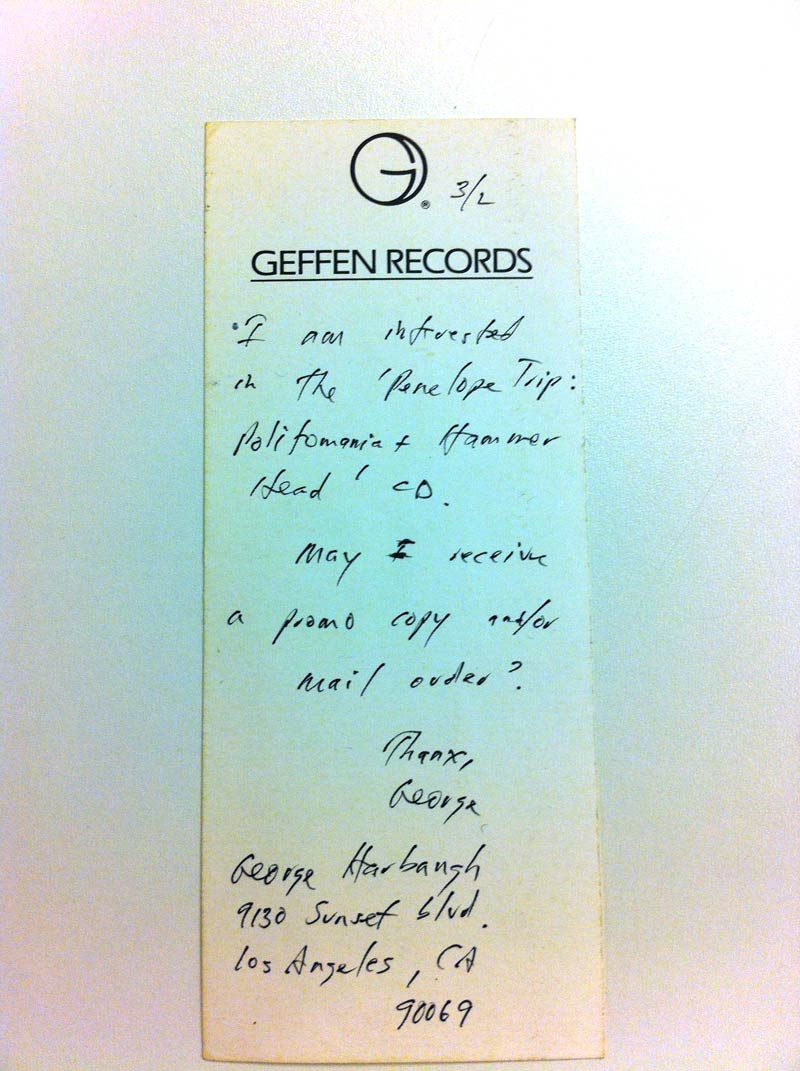 G® 3/2
GEFFEN RECORDS
I am intrested
in the 'Penelope Trip:
Politomania + Hammer
Head' CD.
May I receive
a promo copy and/or
mail order?
Thanx,
George
George Harbaugh
9130 Sunset blvd.
los Angeles, CA
90069